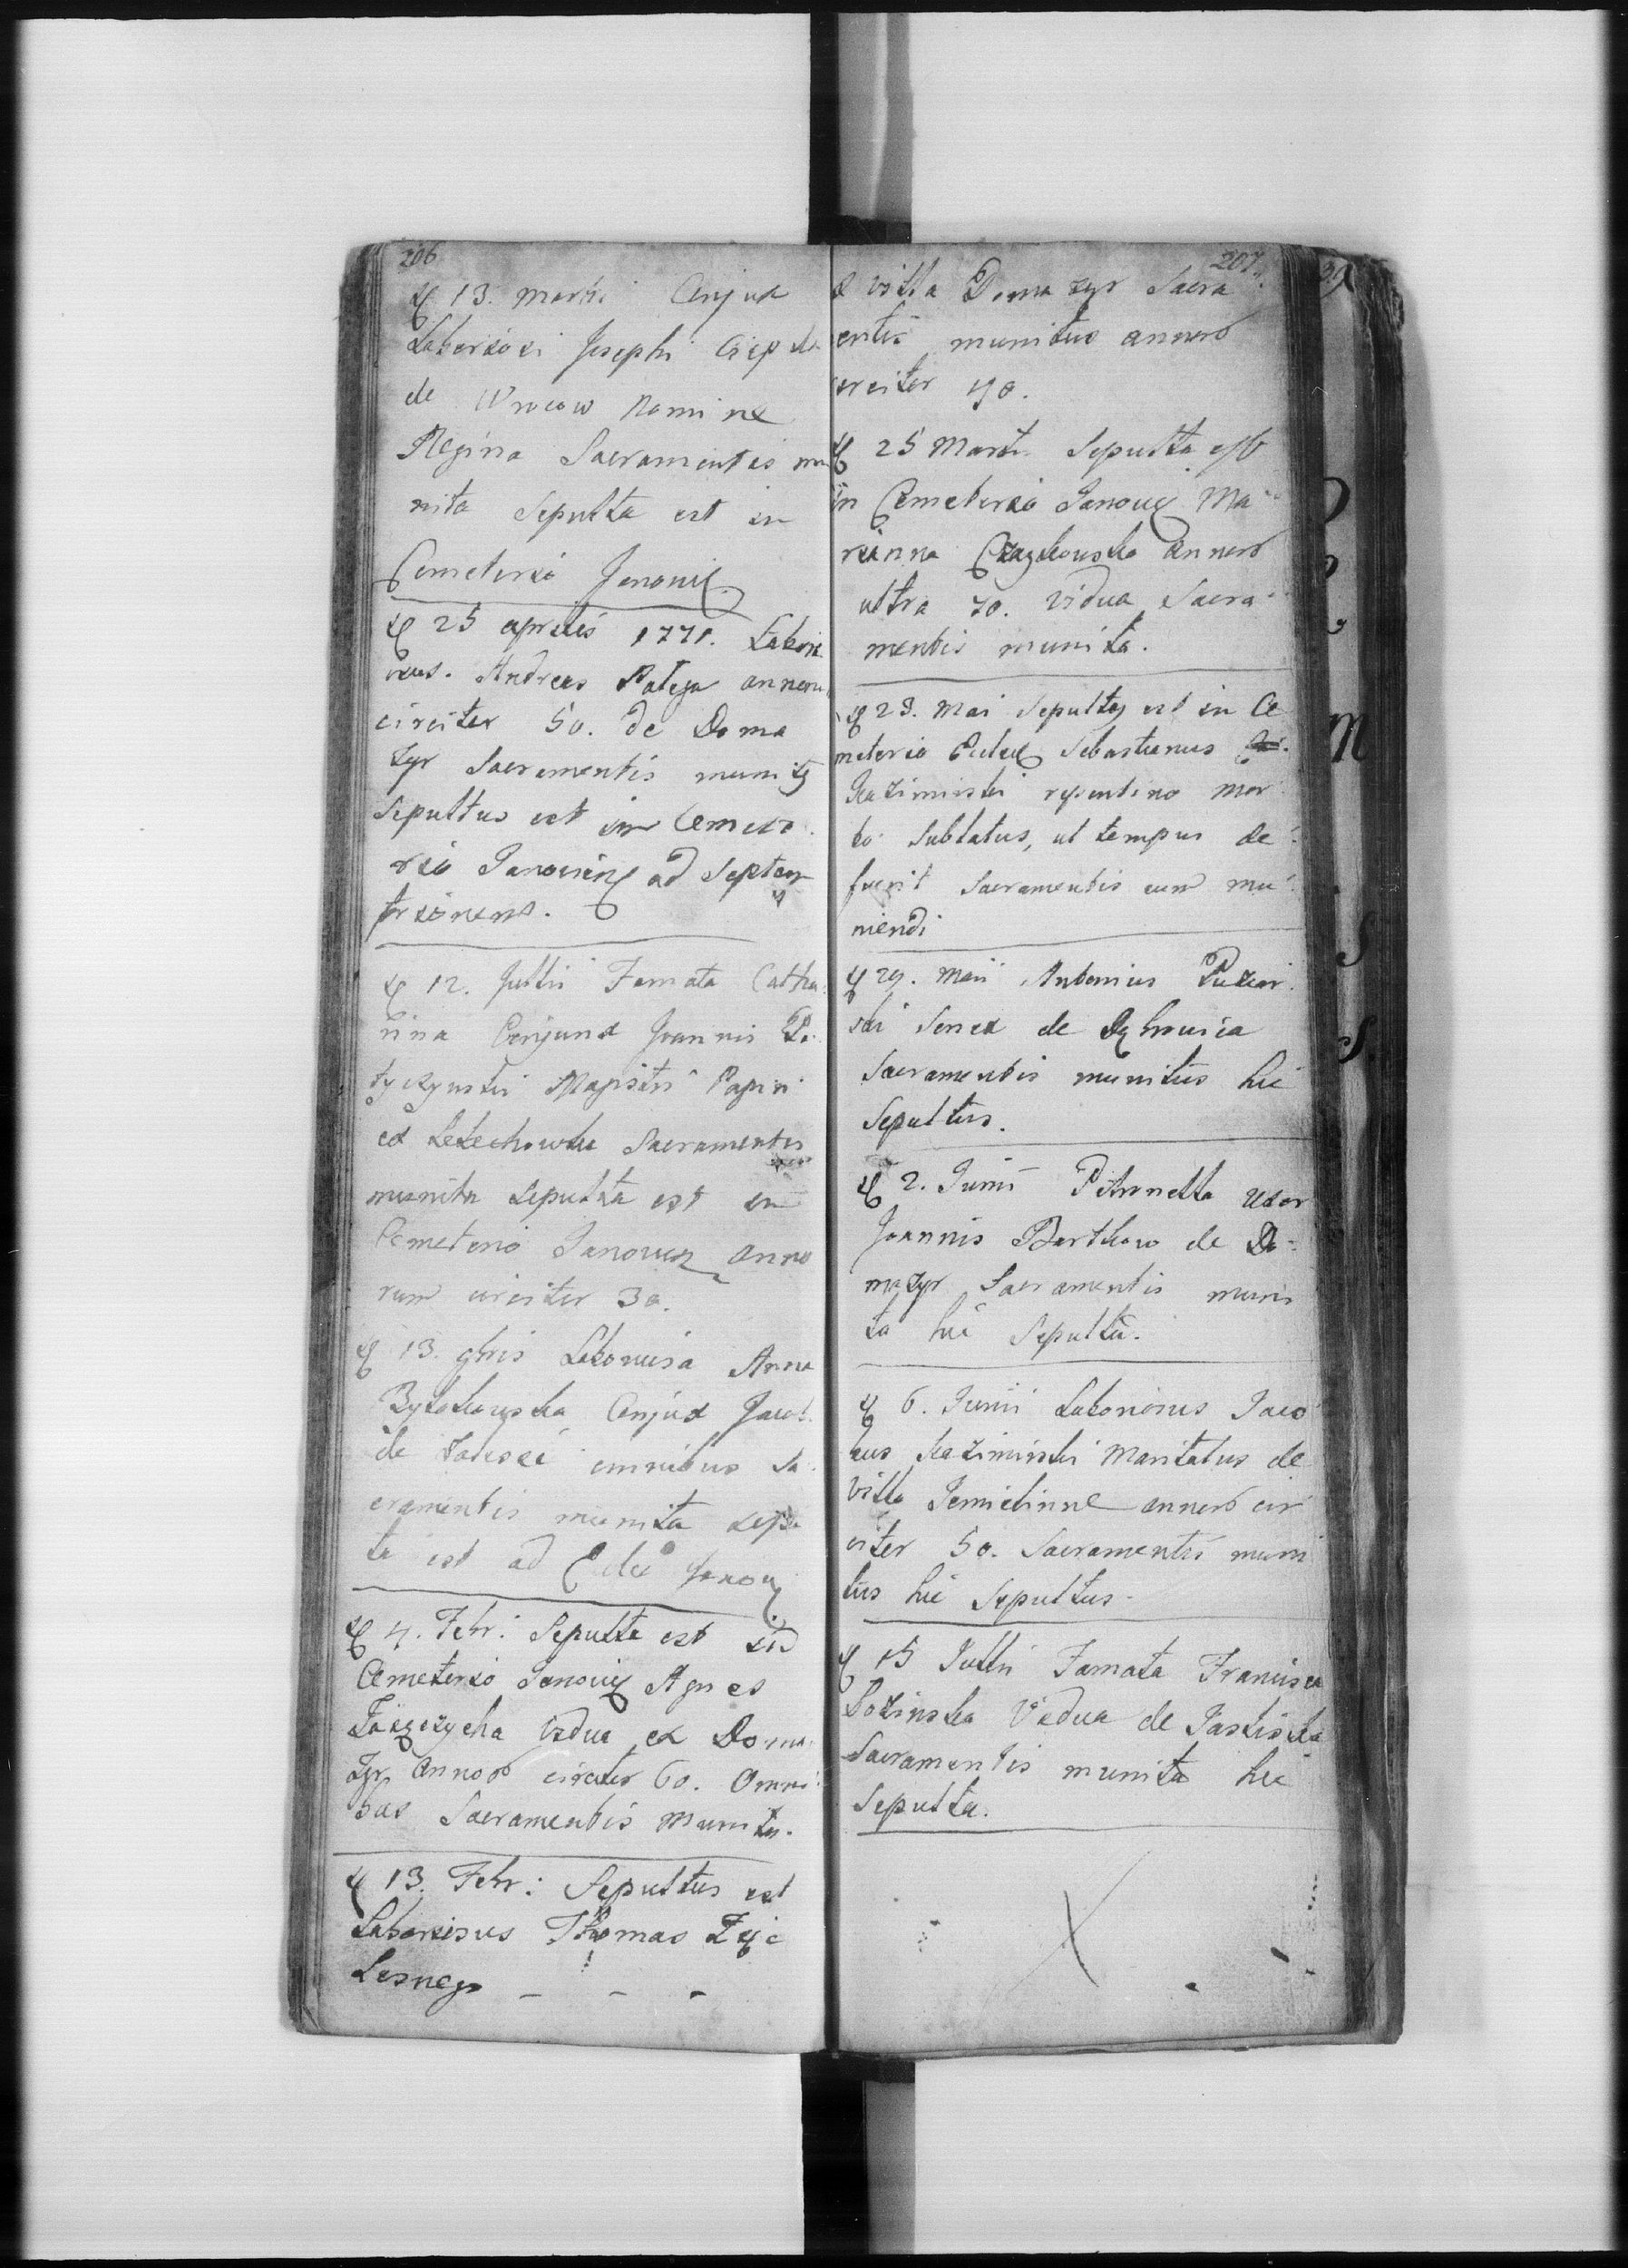 206
13. Martii Conjux
Laboriosi Josephi
de Wrocow Nomine
Regina Sacramentis mu
nita Sepulta est in
Cemeterio Janovie.
25 aprilis 1771. Labori
osus. Andreas Patega annoru
circiter 50. de Doma
zyr Sacramentis munitg
Sepultus est in Cemete
rio ad Septen
trionem.
12. Julii Famata Catha
rina Conjunx Joannis
Magistri
ex Lelechowka Sacramentis
munita Sepulta est in
Cemeterio Janovien anno
rum circiter 30.
13. 9bris Laboriosa Anna
Conjux Jacobi
de omnibus Sa
cramentis munita sepu
ta est ad
4. Febr: Sepulta est in
Cemeterio Janovie Agnes
vidua ex Doma
zyr annor circiter 60. Omni
bus Sacramentis munita.
13. Febr: Sepultus est
Laboriosus Thomas
Lesnego - - -
207.
villa Domazyr Sacra
entis munitus annor
irciter 40.
25 Martii Sepulta est
in Cemeterio Janovie Ma
rianna annor
ultra 70. vidua Sacra
mentis munita.
23. Mai Sepultg est in Ce
meterio Sebastianus
Kazimirski repentino mor
bo Sublatus, ut tempus de
fuerit Sacramentis eum mu
niendi
29. Maii Antonius
ski Senex de
Sacramentis munitus hic
Sepultus.
2. Junii Petronella uxor
Joannis Bartkow de Do
mazyr Sacramentis muni
ta hic Sepulta.
6. Junii Laboriosus Jaco
bus Kazimirski Maritatus de
villa annor cir
citer 50. Sacramentis muni
tus hic Sepultus.
15 Julii Famata Francisca
Lozinska Vidua de
Sacramentis munita hic
Sepulta.